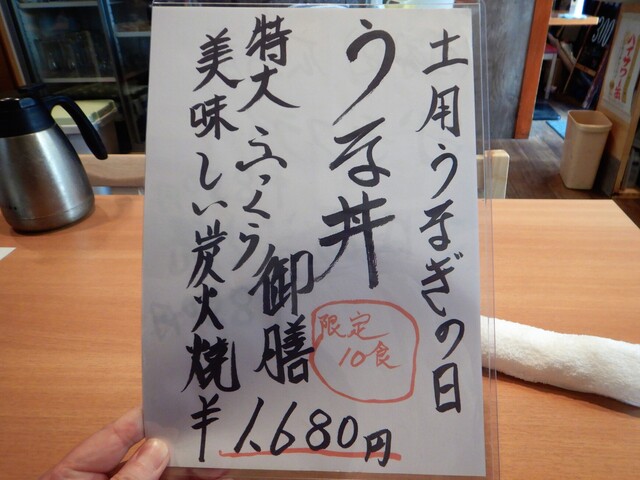 土用うなぎの日
うな丼
御膳
限定
10食
特大ふっくら
美味しい炭火焼
¥1,680円